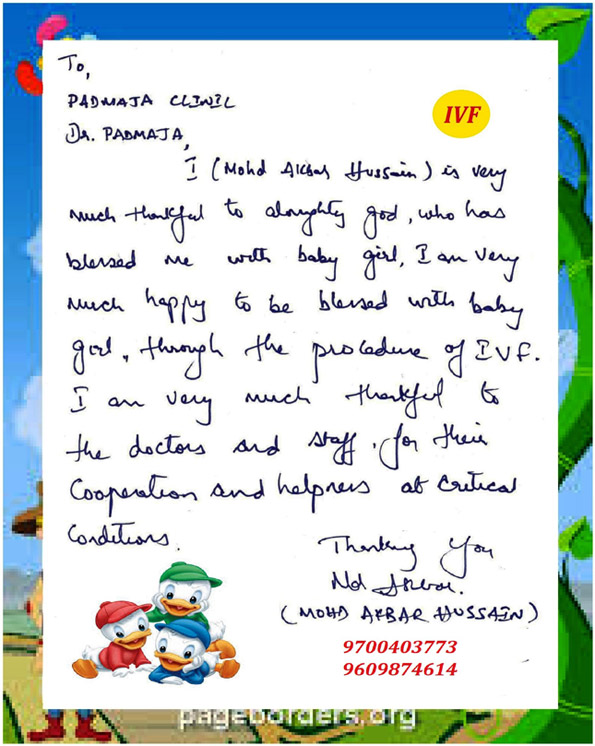 To,
PADMAJA CLINIC
IVF
Dr. PADMAJA,
I (Mohd Akbar Hussain) is very
much thankful to almighty god, who has
blessed me with baby girl, I am very
much happy to be blessed with baby
girl, through the procedure of IVF.
I am very much thankful to
the doctors and staff, for their
Cooperation and helpness at critical
Conditions.
Thanking You
Md Akbar.
(MOHD AKBAR HUSSAIN)
9700403773
9609874614
pageborders.org